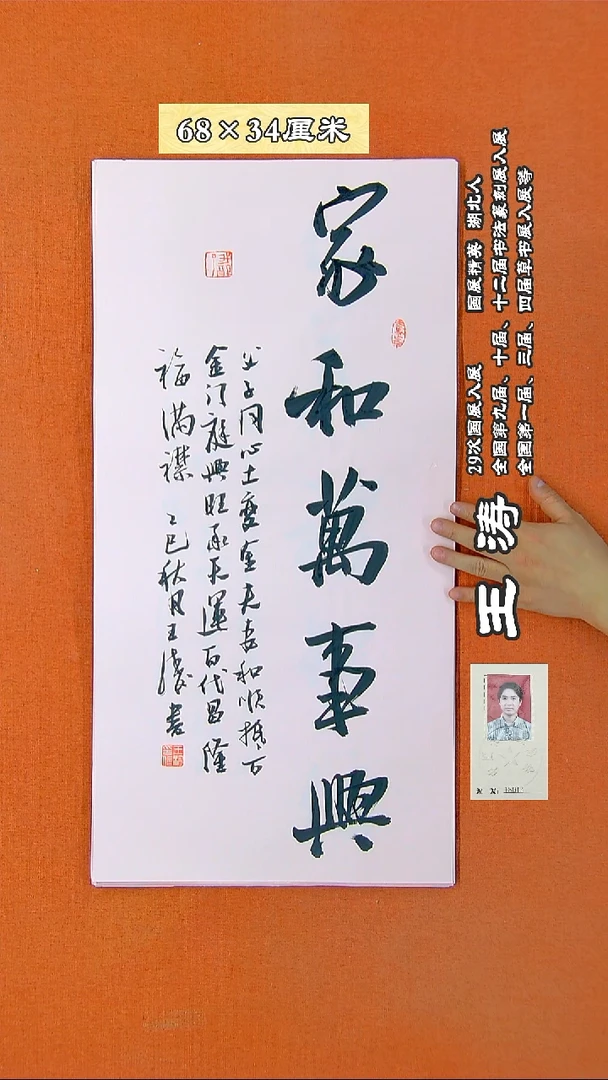 68×34厘米
家和萬事興
父子同心土變金夫妻和順抵百
金门庭興旺承天運百代昌隆
福满襟 乙巳秋月王濤書
29次国展入展 国展精英 湖北人
全国第九届、十届、十二届书法篆刻展入展
全国第一届、三届、四届草书展入展等
王涛